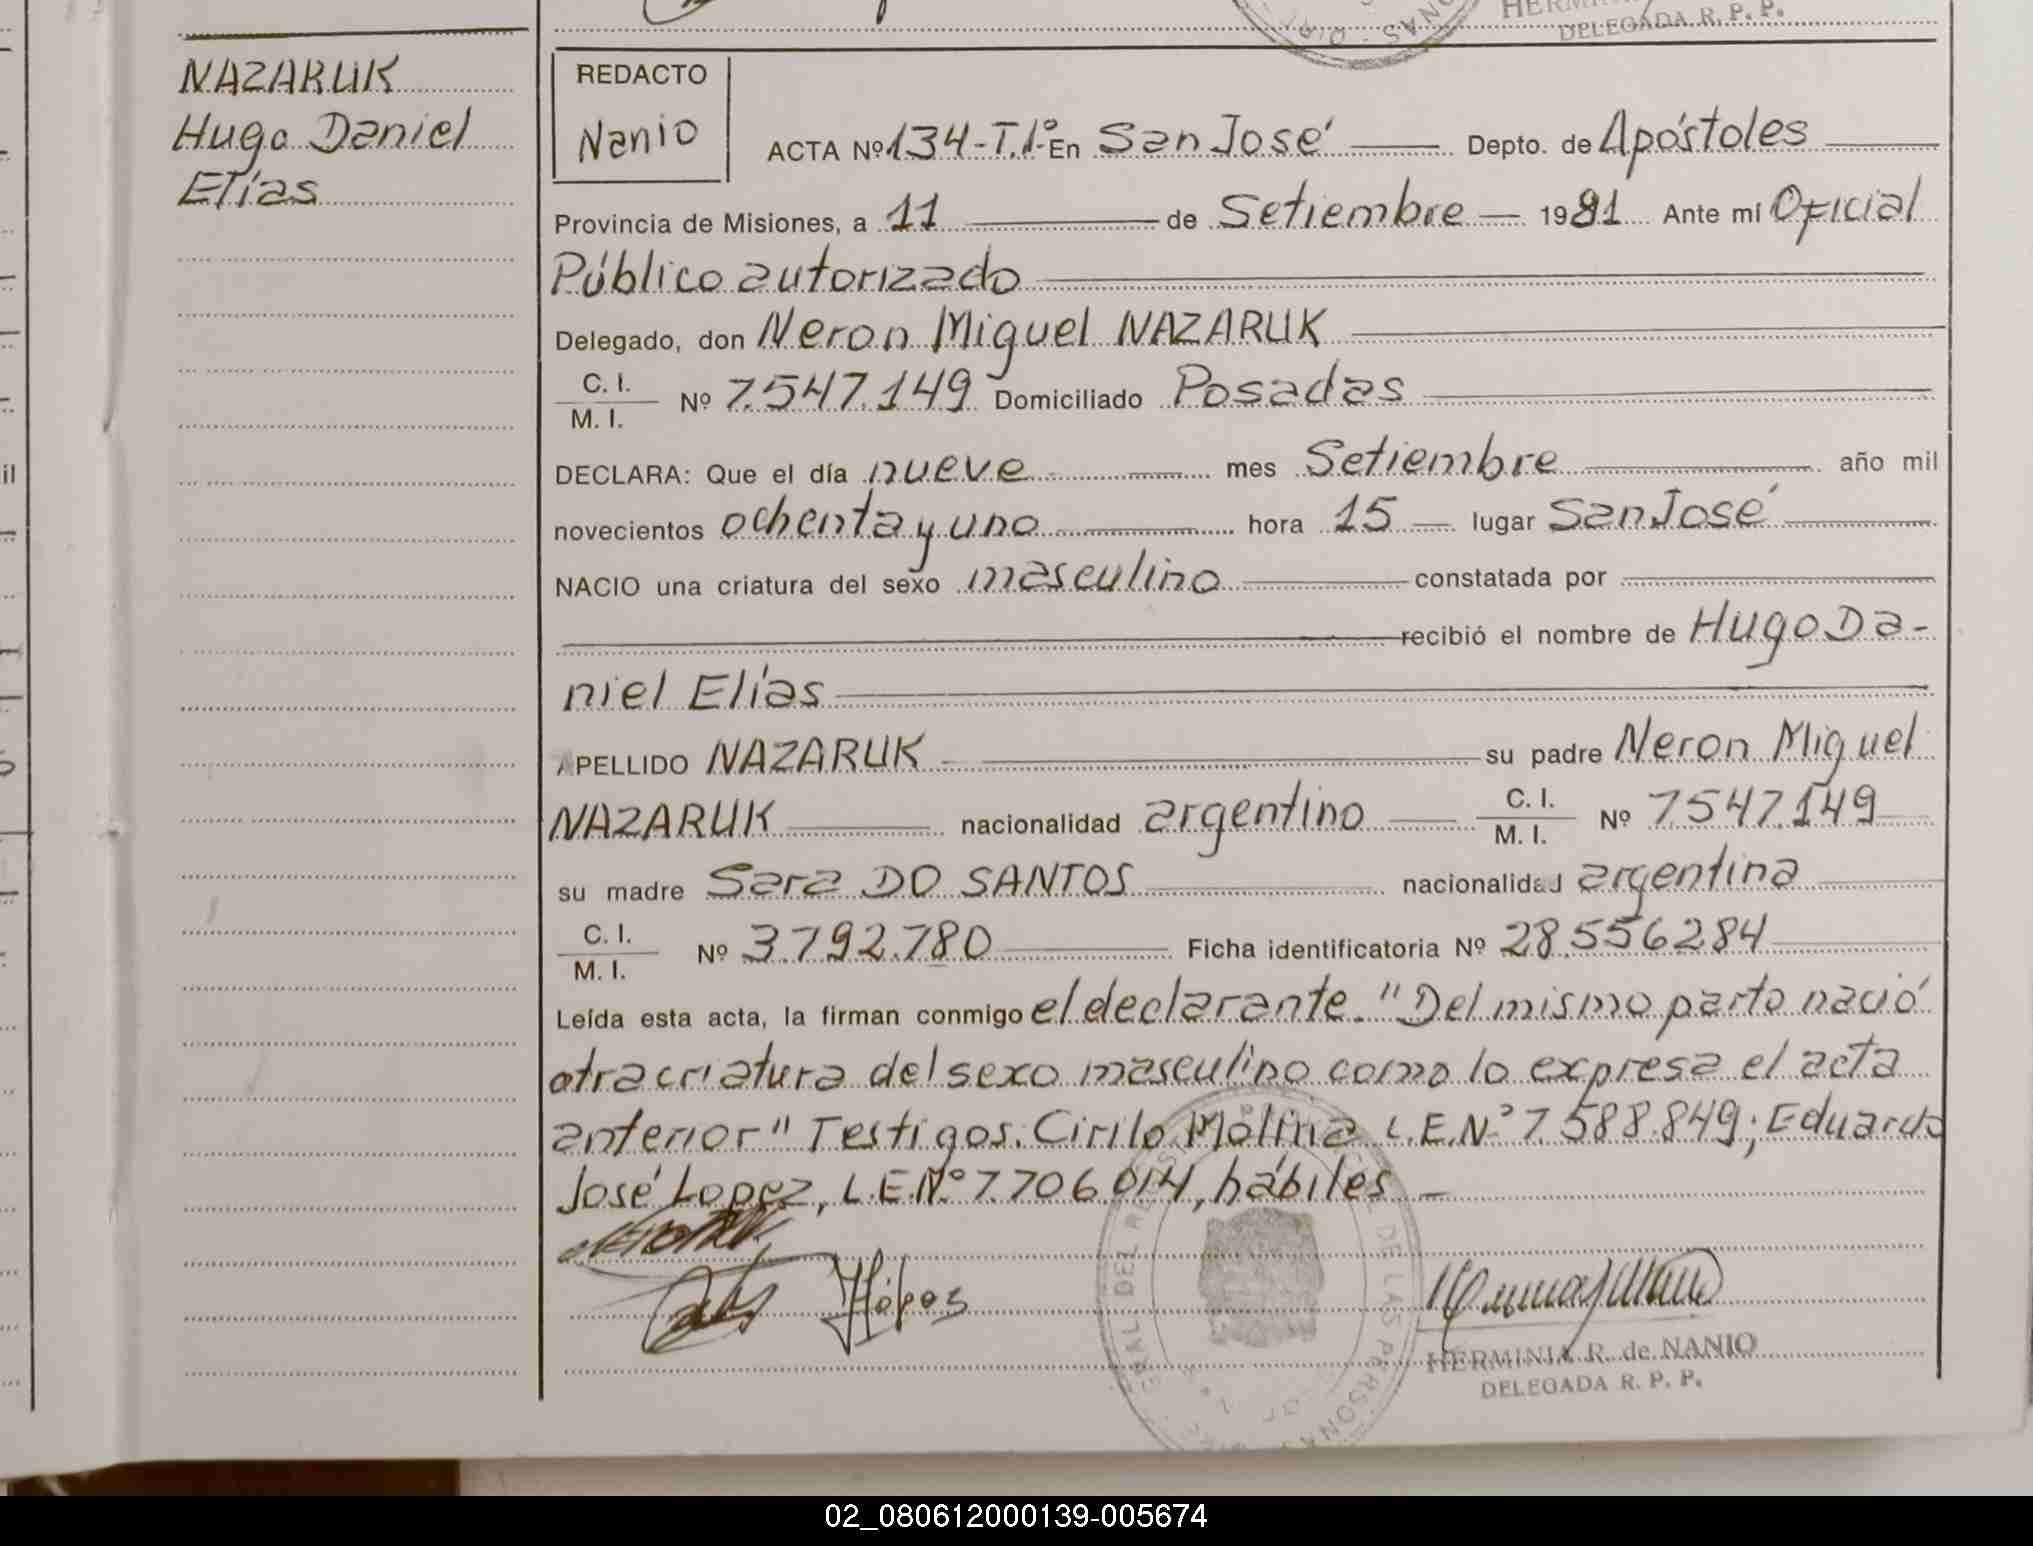 HERMINIA
DELEGADA R. P. P.
NAZARUK
Hugo Daniel
Elías
REDACTO
Nanio
ACTA Nº 134-T.1º En San José Depto. de Apóstoles
Provincia de Misiones, a 11 de Setiembre 1981 Ante mí Oficial
Público autorizado
Delegado, don Neron Miguel NAZARUK
C. I.
M. I. Nº 7.547.149 Domiciliado Posadas
DECLARA: Que el día nueve mes Setiembre año mil
novecientos ochenta y uno hora 15 lugar San José
NACIO una criatura del sexo masculino constatada por
recibió el nombre de Hugo Da-
niel Elías
APELLIDO NAZARUK su padre Neron Miguel
NAZARUK nacionalidad argentino C. I. M. I. Nº 7.547.149
su madre Sara DO SANTOS nacionalidad argentina
C. I.
M. I. Nº 3.792.780 Ficha identificatoria Nº 28.556284
Leída esta acta, la firman conmigo el declarante. "Del mismo parto nació
otra criatura del sexo masculino como lo expresa el acta
anterior" Testigos. Cirilo Molina L.E.Nº 7.588.849; Eduardo
José Lopez, L.E.Nº 7.706 014, hábiles
HERMINIA R. de NANIO
DELEGADA R. P. P.
02_080612000139-005674